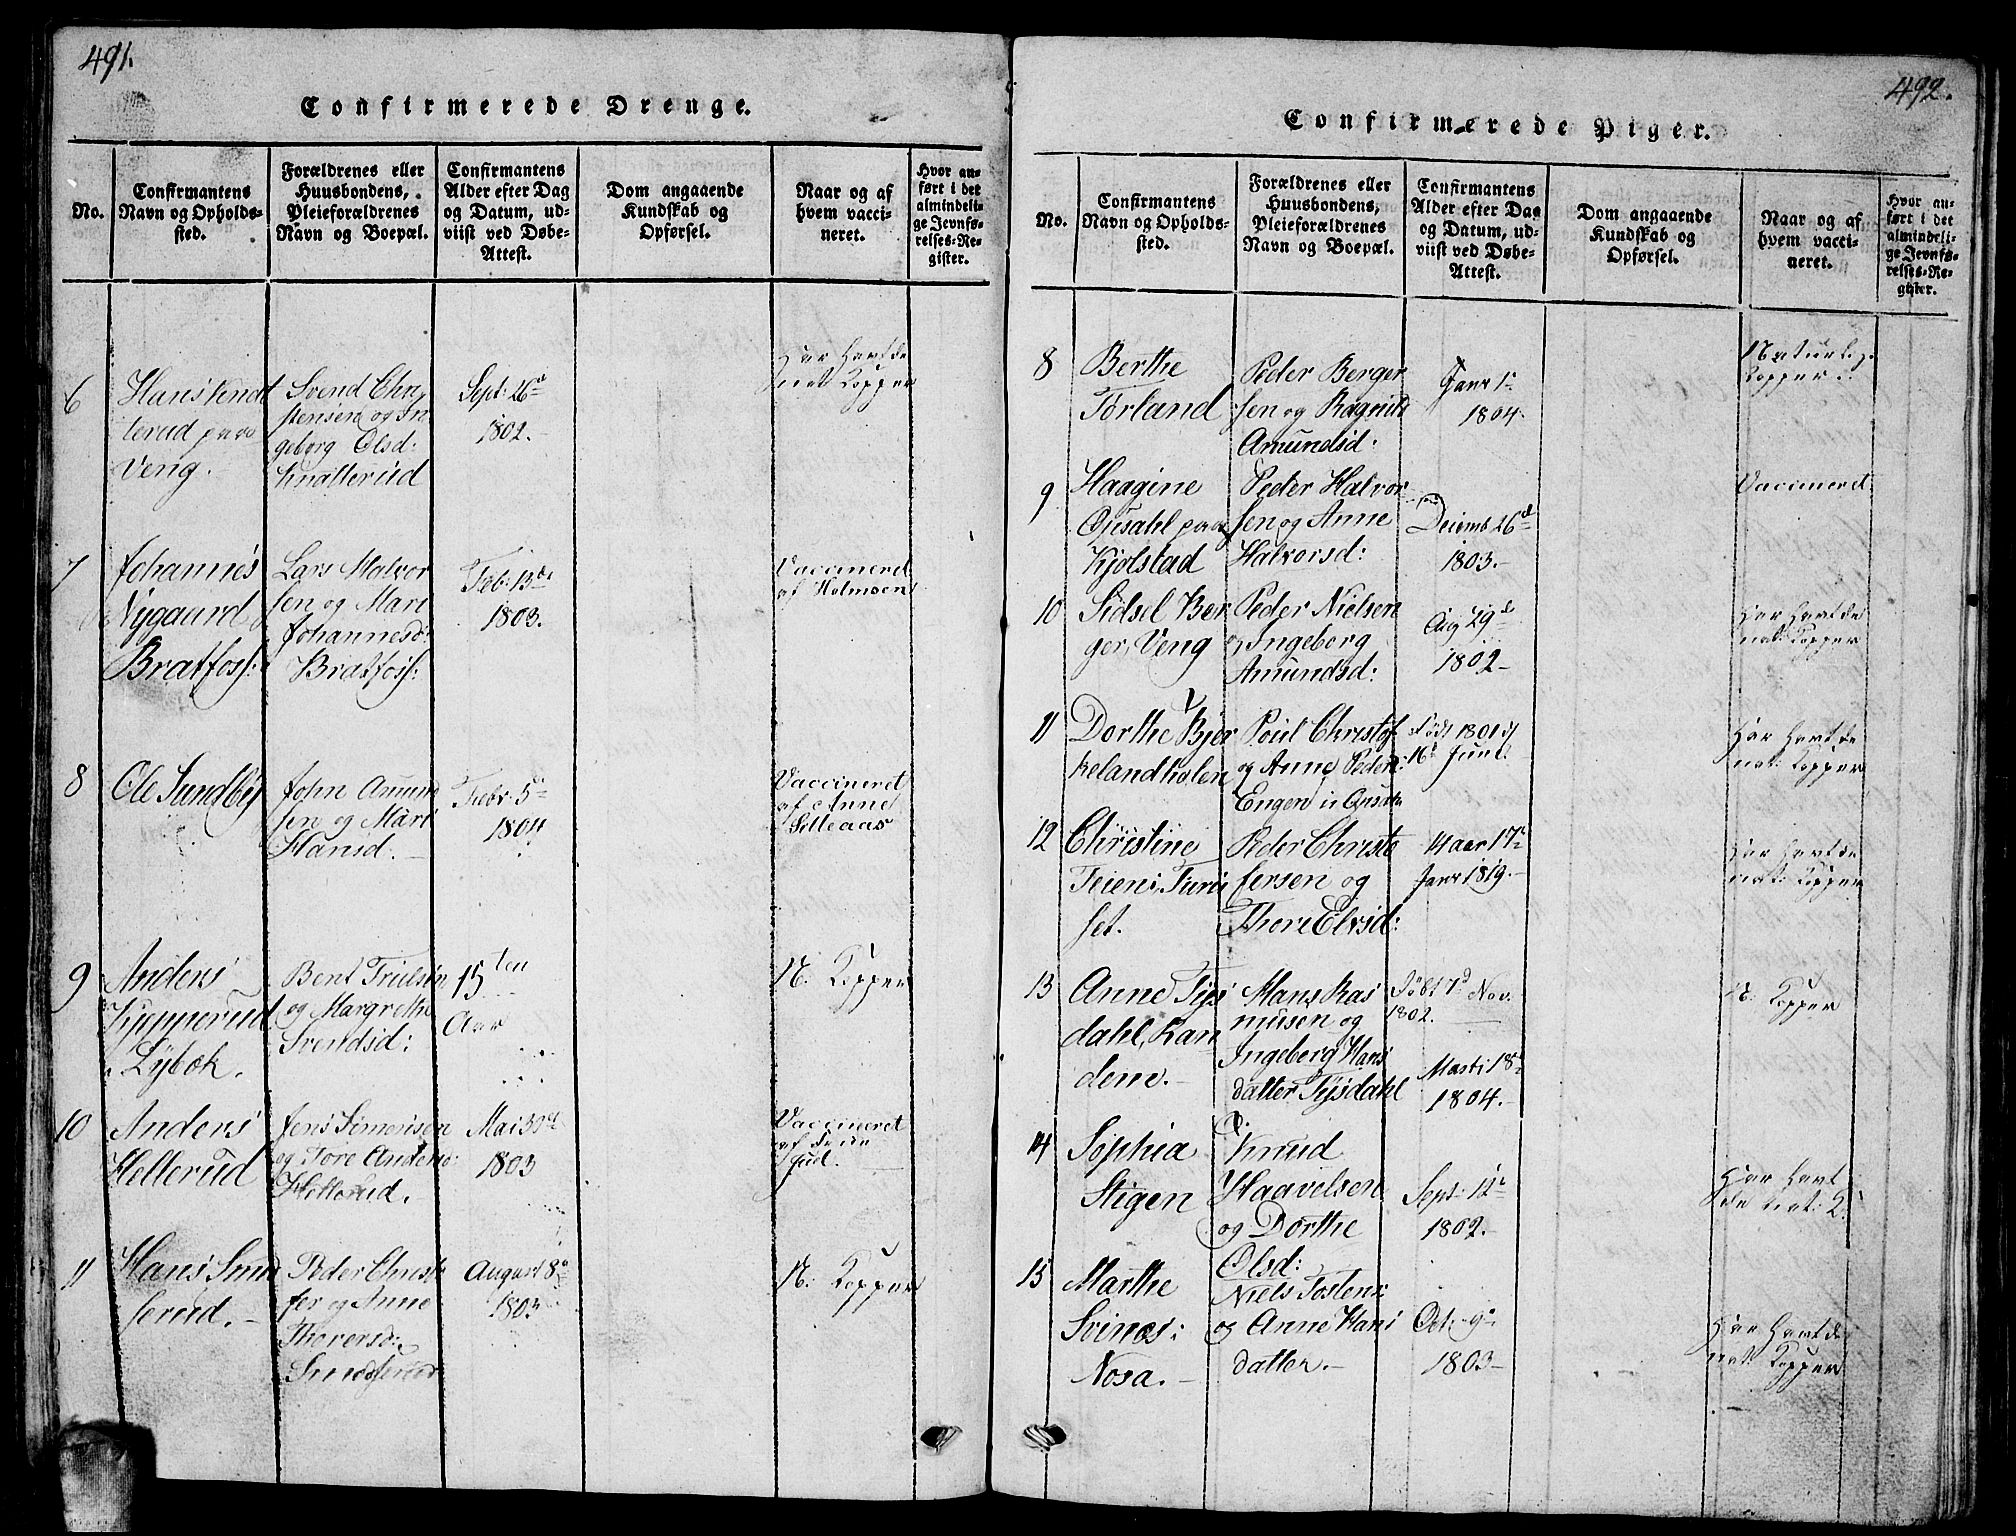 491.
Confirmerede Drenge.
No.
Confirmantens
Navn og Opholds-
sted.
Forældrenes eller
Huusbondens,
Pleieforældrenes
Navn og Boepæl.
Confirmantens
Alder efter Dag
og Datum, ud-
viist ved Døbe-
Attest.
Dom angaaende
Kundskab og
Opførsel.
Naar og af
hvem vacci-
neret.
Hvor an-
ført i det
almindeli-
ge Jevnfø-
relses-Re-
gister.
6
Hans
terud paa
Veng.
Svend Chri
stensen og In
geborg Olsd:
Knatterud
Sept: 26d
1802.
Har havt de
nat: Kopper
7
Johannes
Nygaard
Bratfoss:
Lars Halvor
sen og Mari
Johannesd:
Bratfoss:
Feb: 13de
1803.
Vaccineret
af Holmsen
8
Ole Sundby
John Amund
sen og Mari
Hansd.
Febr: 5
1804
Vaccineret
af Anne
Lilleaas
9
Anders
Kopperud
Lybek.
Bent Truelsen
og Margrethe
Svendsd:
15ten
Aar
N. Kopper
10
Anders
Hellerud
Jens Simensen
og Tore Andersd:
Hellerud.
Mai 30d
1803
Vaccineret
af
Jud.
11
Hans Smed
serud.
Peder Christo
fer og Anne
Thorersd:
Smedserud
August 8
1803
N: Kopper
492.
Confirmerede Piger.
No.
Confirmantens
Navn og Opholds-
sted.
Forældrenes eller
Huusbondens,
Pleieforældrenes
Navn og Boepæl.
Confirmantens
Alder efter Dag
og Datum, ud-
viist ved Døbe-
Attest.
Dom angaaende
Kundskab og
Opførsel.
Naar og af
hvem vacci-
neret.
Hvor an-
ført i det
almindeli-
ge Jevnfø-
relses-Re-
gister.
8
Berthe
Torland
Peder Berger
sen og Ragnild
Amundsd:
Janr 1
1804.
Naturlig:
Kopper
9
Haagine
Ojesahl paa
Kjølstad
Peder Halvor
sen og Anne
Halvorsd:
Decemb 26d
1803.
Vaccineret
10
Sidsel Ber
ger, Veng
Peder Nielsen
og Ingeborg
Amundsd:
Aug 29d
1802
Har havt de
nat: Kopper
11
Dorthe Bjør
kelandholen
Poul Christof
og Anne Peders:
Engen
Født 1801 d
16d Juni
Har havt de
nat: Kopper
12
Christine
Teien i Turi
set.
Peder Christo
fersen og
Thore Elvsd:
14 aar 17
Janr 1819.
Har havt de
nat: Kopper
13
Anne Tys
dahl, Ran
dem.
Hans Ras
musen og
Ingeberg Hans
datter Tysdahl
Født 7d Nov.
1802.
Marti 18
1804.
N: Kopper
14
Sophia
Stigen
Knud
Haavelsen
og Dorthe
Olsd:
Sept: 12
1802.
Har havt
de nat: K.
15
Marthe
Svines:
Nosa.
Niels Tostens:
og Anne Hans
datter.
Octr 9
1803
Har havt de
nat: Kopper